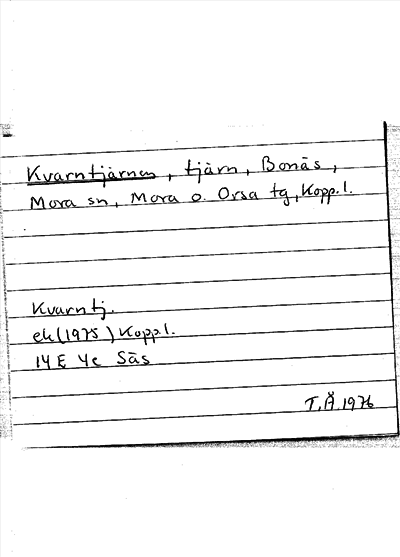 Kvarntjärnen, tjärn, Bonäs,
Mora sn, Mora o. Orsa tg, Kopp. l.
Kvarntj.
ek (1975) Kopp. l.
14 E 4c Säs
T.Å. 1976